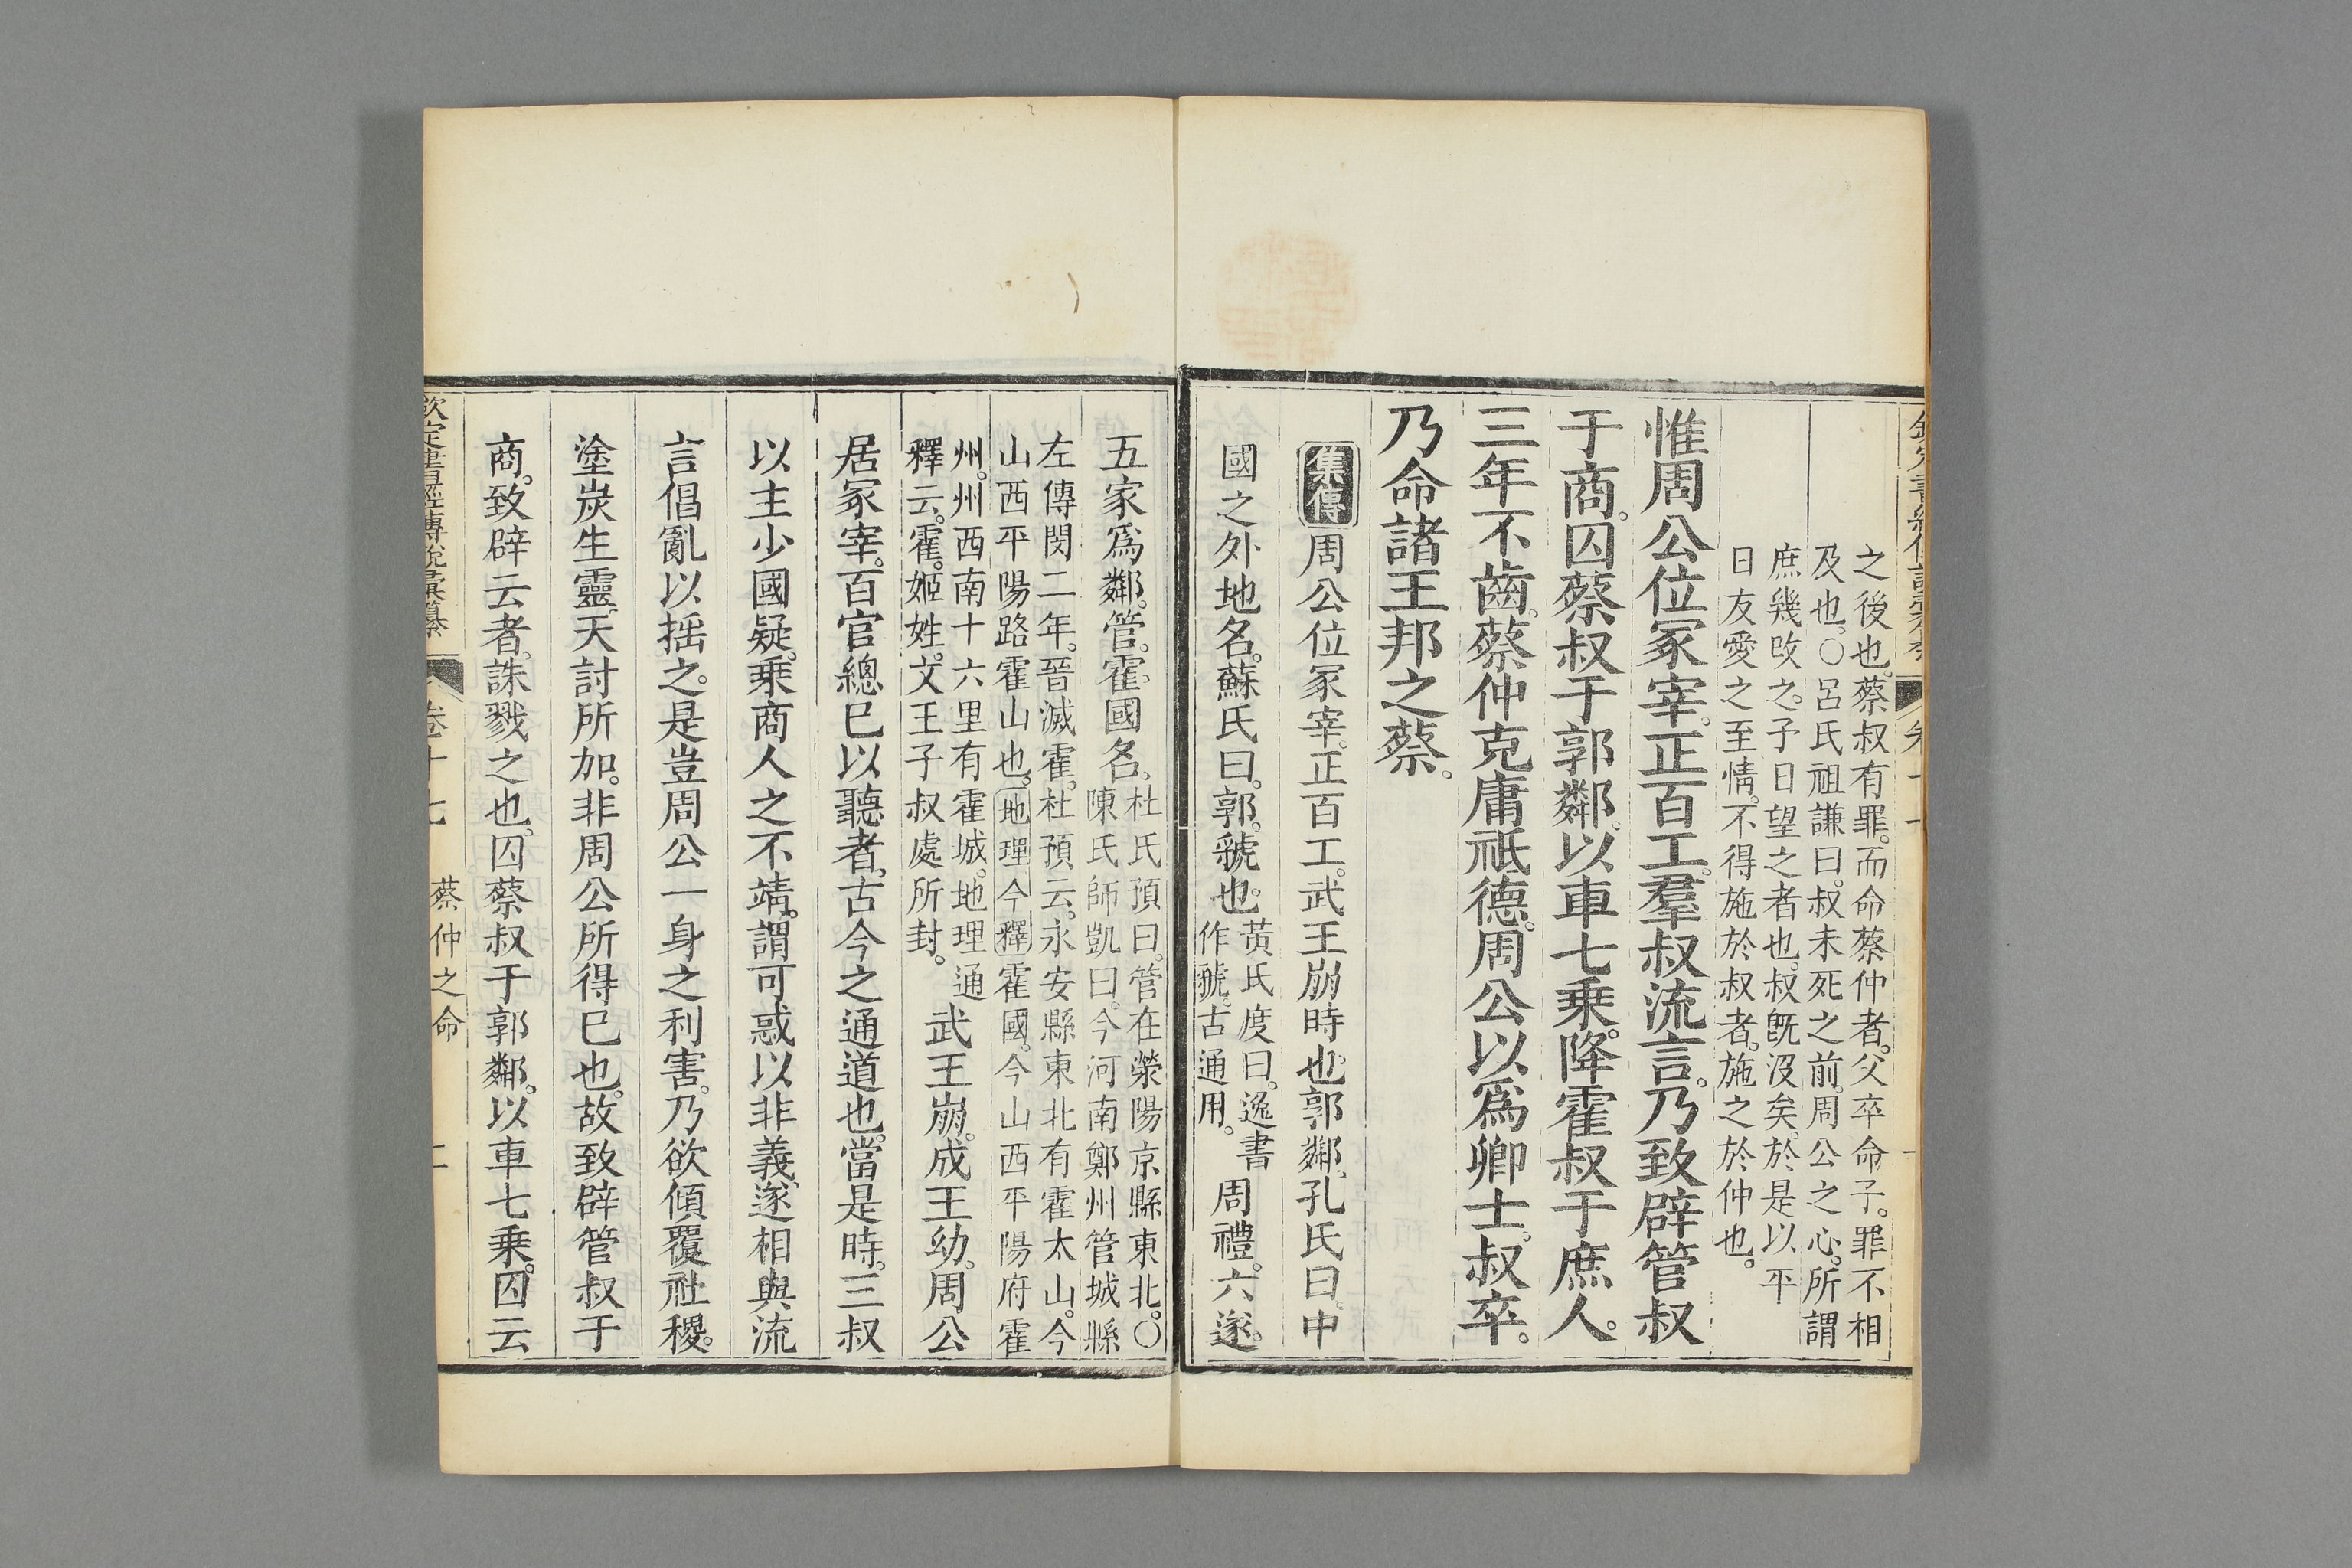 之後也。蔡叔有罪。而命蔡仲者。父卒命子。罪不相
及也。〇呂氏祖謙曰。叔未死之前。周公之心。所謂
庶幾改之。予日望之者也。叔旣沒矣。於是以平
日友愛之至情。不得施於叔者。施之於仲也。
惟周公位冢宰。正百工。羣叔流言。乃致辟管叔
于商。囚蔡叔于郭鄰。以車七乗。降霍叔于庶人。
三年不齒。蔡仲克庸祗德。周公以爲卿士。叔卒。
乃命諸王邦之蔡。
集傳 周公位冢宰。正百工。武王崩時也。郭鄰。孔氏曰。中
國之外地名。蘇氏曰。郭。虢也。
黃氏度曰。逸書
作虢。古通用。
周禮。六遂。
五家爲鄰。管。霍。國名。
杜氏預曰。管在滎陽京縣東北。〇
陳氏師凱曰。今河南鄭州管城縣
左傳閔二年。晉滅霍。杜預云。永安縣東北有霍太山。今
山西平陽路霍山也。地理今釋霍國。今山西平陽府霍
州。州西南十六里有霍城。地理通
釋云。霍。姬姓。文王子叔處所封。
武王崩。成王幼。周公
居冢宰。百官總已以聽者。古今之通道也。當是時。三叔
以主少國疑。乗商人之不靖。謂可惑以非義。遂相與流
言倡亂以搖之。是豈周公一身之利害。乃欲傾覆社稷。
塗炭生靈。天討所加。非周公所得已也。故致辟管叔于
商。致辟云者。誅戮之也。囚蔡叔于郭鄰。以車七乗。囚云
欽定書經傳說彙纂 卷十七 蔡仲之命 二